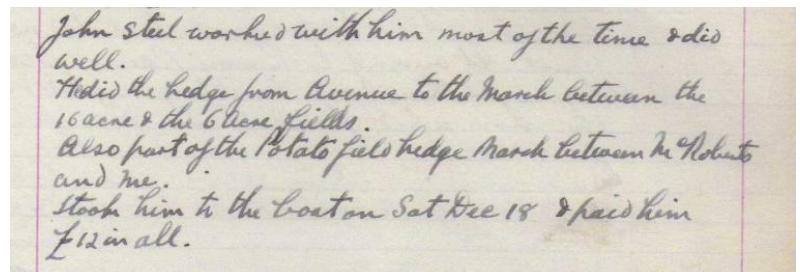 John Steel worked with him most of the time & did
well.
H did the hedge from Avenue to the March between the
16 acre & the 6 Acre fields.
Also part of the Potato field hedge March between McRoberts
and me.
I took him to the boat on Sat Dec 18 & paid him
£12 in all.